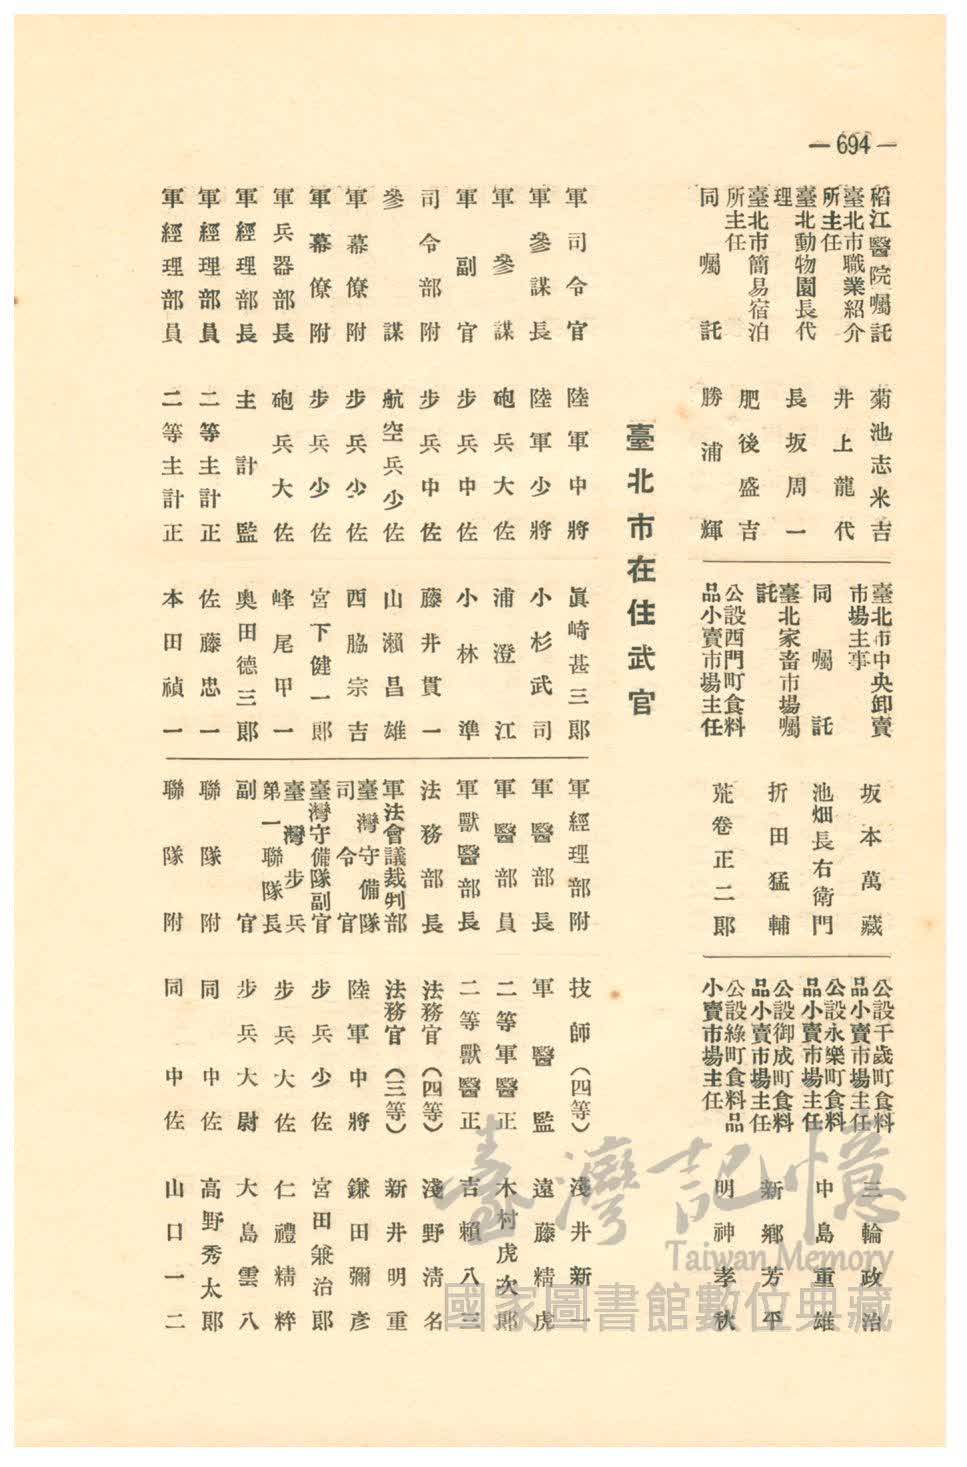 — 694 —
稻江醫院囑託 菊池志米吉
臺北市職業紹介
所主任 井上龍代
臺北動物園長代
理 長坂周一
臺北市簡易宿泊
所主任 肥後盛吉
同囑託 勝浦輝
臺北市中央卸賣
市場主事 坂本萬藏
同囑託 池畑長右衛門
臺北家畜市場囑
託 折田猛輔
公設西門町食料
品小賣市場主任 荒卷正二郎
公設千歲町食料
品小賣市場主任 三輪政治
公設永樂町食料
品小賣市場主任 中島重雄
公設御成町食料
品小賣市場主任 新鄉芳平
公設綠町食料品
小賣市場主任 明神孝秋
臺北市在住武官
軍司令官 陸軍中將 眞崎甚三郎
軍參謀長 陸軍少將 小杉武司
軍參謀 砲兵大佐 浦澄江
軍副官 步兵中佐 小林準
司令部附 步兵中佐 藤井貫一
參謀 航空兵少佐 山瀨昌雄
軍幕僚附 步兵少佐 西脇宗吉
軍幕僚附 步兵少佐 宮下健一郎
軍兵器部長 砲兵大佐 峰尾甲一
軍經理部長 主計監 奧田德三郎
軍經理部員 二等主計正 佐藤忠一
軍經理部員 二等主計正 本田禎一
軍經理部附 技師(四等) 淺井新一
軍醫部長 軍醫監 遠藤精虎
軍醫部員 二等軍醫正 木村虎次郎
軍獸醫部長 二等獸醫正 吉賴八三
法務部長 法務官(四等) 淺野清名
軍法會議裁判部 法務官(三等) 新井明重
臺灣守備隊
司令官 陸軍中將 鎌田彌彥
臺灣守備隊副官 步兵少佐 宮田兼治郎
臺灣步兵
第一聯隊長 步兵大佐 仁禮精粹
副官 步兵大尉 大島雲八
聯隊附 同中佐 高野秀太郎
聯隊附 同中佐 山口一二
臺灣記憶
Taiwan Memory
國家圖書館數位典藏